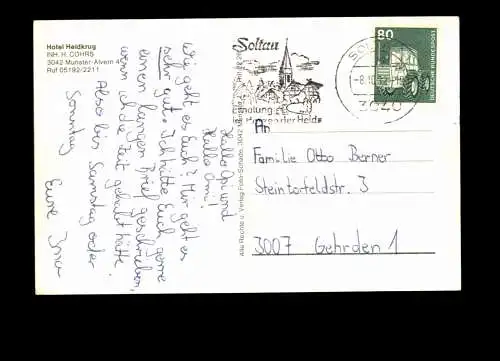 Hotel Heidkrug
INH. H. COHRS
3042 Munster-Alvern 4
Ruf 05192/2211
Hallo Opi und
Hallo Omi!
Wie geht es Euch? Mir geht es
sehr gut. Ich hätte Euch gerne
einen langen Brief geschrieben,
wenn ich die Zeit gehabt hätte.
Also bis Samstag oder
Sonntag
Eure
Alle Rechte u. Verlag Foto-Schade, 3042
Soltau
Erholung
im Herzen der Heide
SOL
-8.10.
3040
80
DEUTSCHE BUNDESPOST
An
Familie Otto Berner
Steintorfeldstr. 3
3007 Gehrden 1